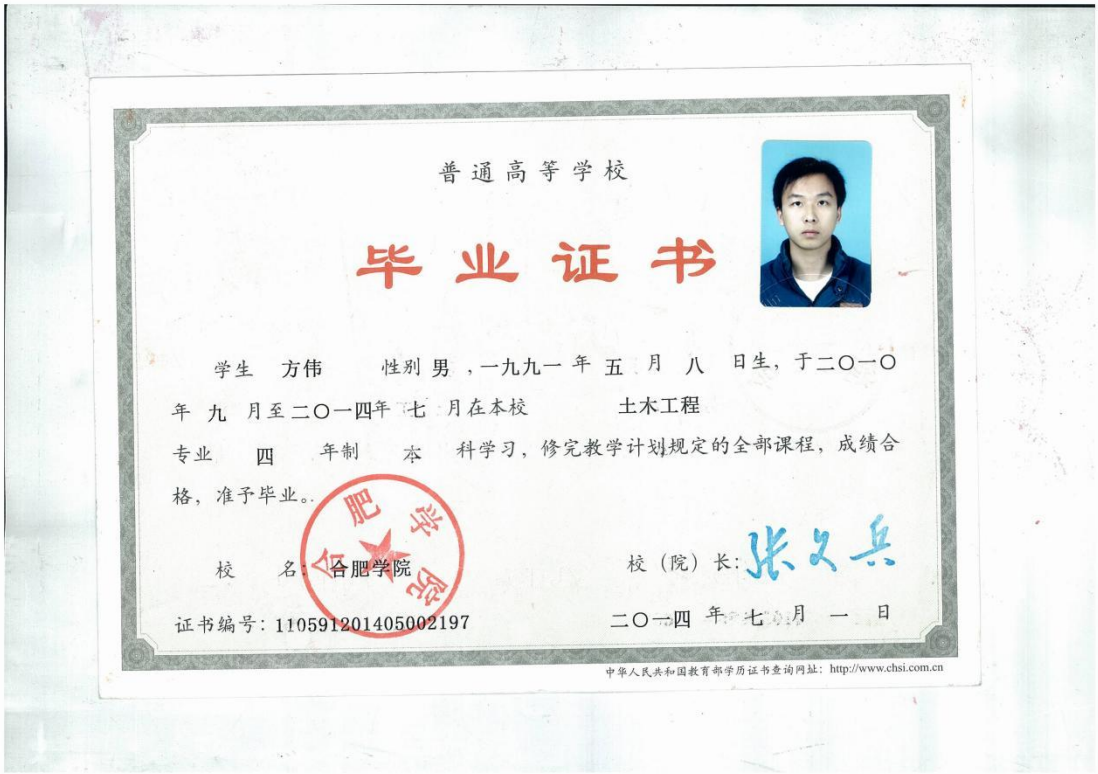 普通高等学校
毕业证书
学生 方伟 性别 男 ，一九九一 年 五 月 八 日生，于二〇一〇
年 九 月至二〇一四年 七 月在本校 土木工程
专业 四 年制 本 科学习，修完教学计划规定的全部课程，成绩合
格，准予毕业。
合肥学院
校 名：合肥学院 校（院）长：张文兵
证书编号：110591201405002197 二〇一四 年 七 月 一 日
中华人民共和国教育部学历证书查询网址：http://www.chsi.com.cn